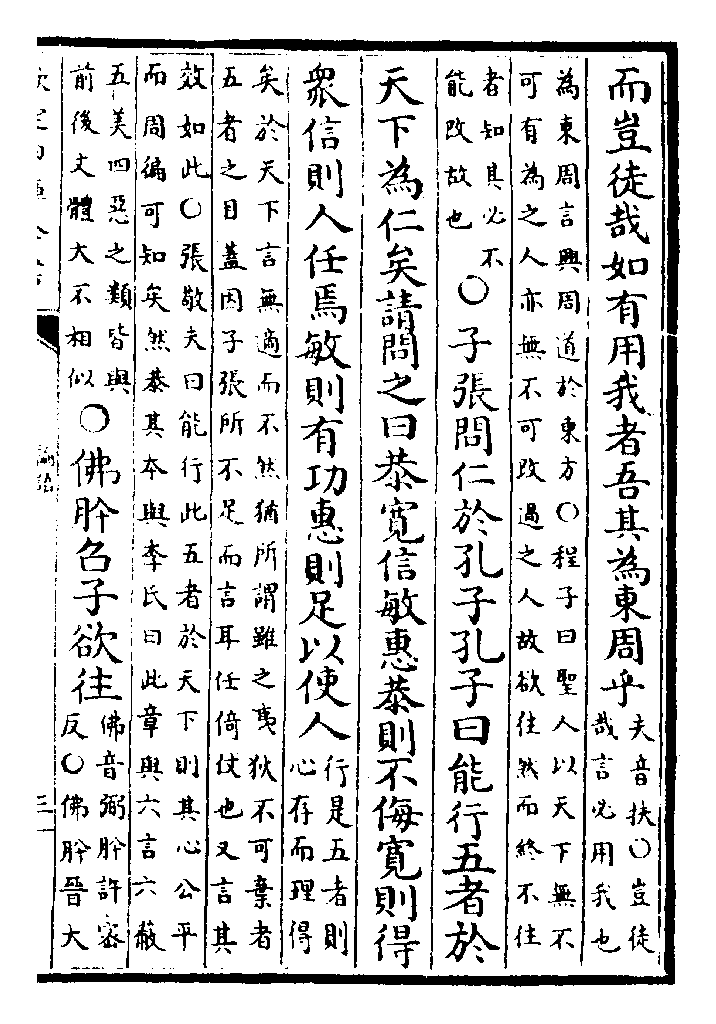 而豈徒哉如有用我者吾其為東周乎夫音扶○豈徒
哉言必用我也
為東周言興周道於東方○程子曰聖人以天下無不
可有為之人亦無不可改過之人故欲往然而終不往
者知其必不
能改故也
○子張問仁於孔子孔子曰能行五者於
天下為仁矣請問之曰恭寬信敏惠恭則不侮寬則得
衆信則人任焉敏則有功惠則足以使人行是五者則
心存而理得
矣於天下言無適而不然猶所謂雖之夷狄不可棄者
五者之目蓋因子張所不足而言耳任倚仗也又言其
效如此○張敬夫曰能行此五者於天下則其心公平
而周徧可知矣然恭其本與李氏曰此章與六言六蔽
五美四惡之類皆與
前後文體大不相似
○佛肸召子欲往佛音弼肸許密
反○佛肸晉大
論語